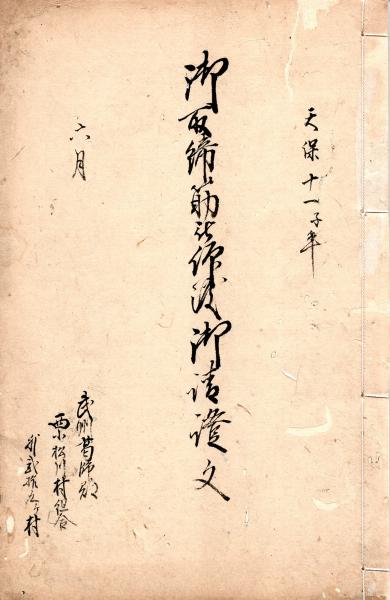 天保十一子年
御取締筋被仰渡御請證文
六月
武州葛飾郡
西小松川村組合
外貳拾ヶ村